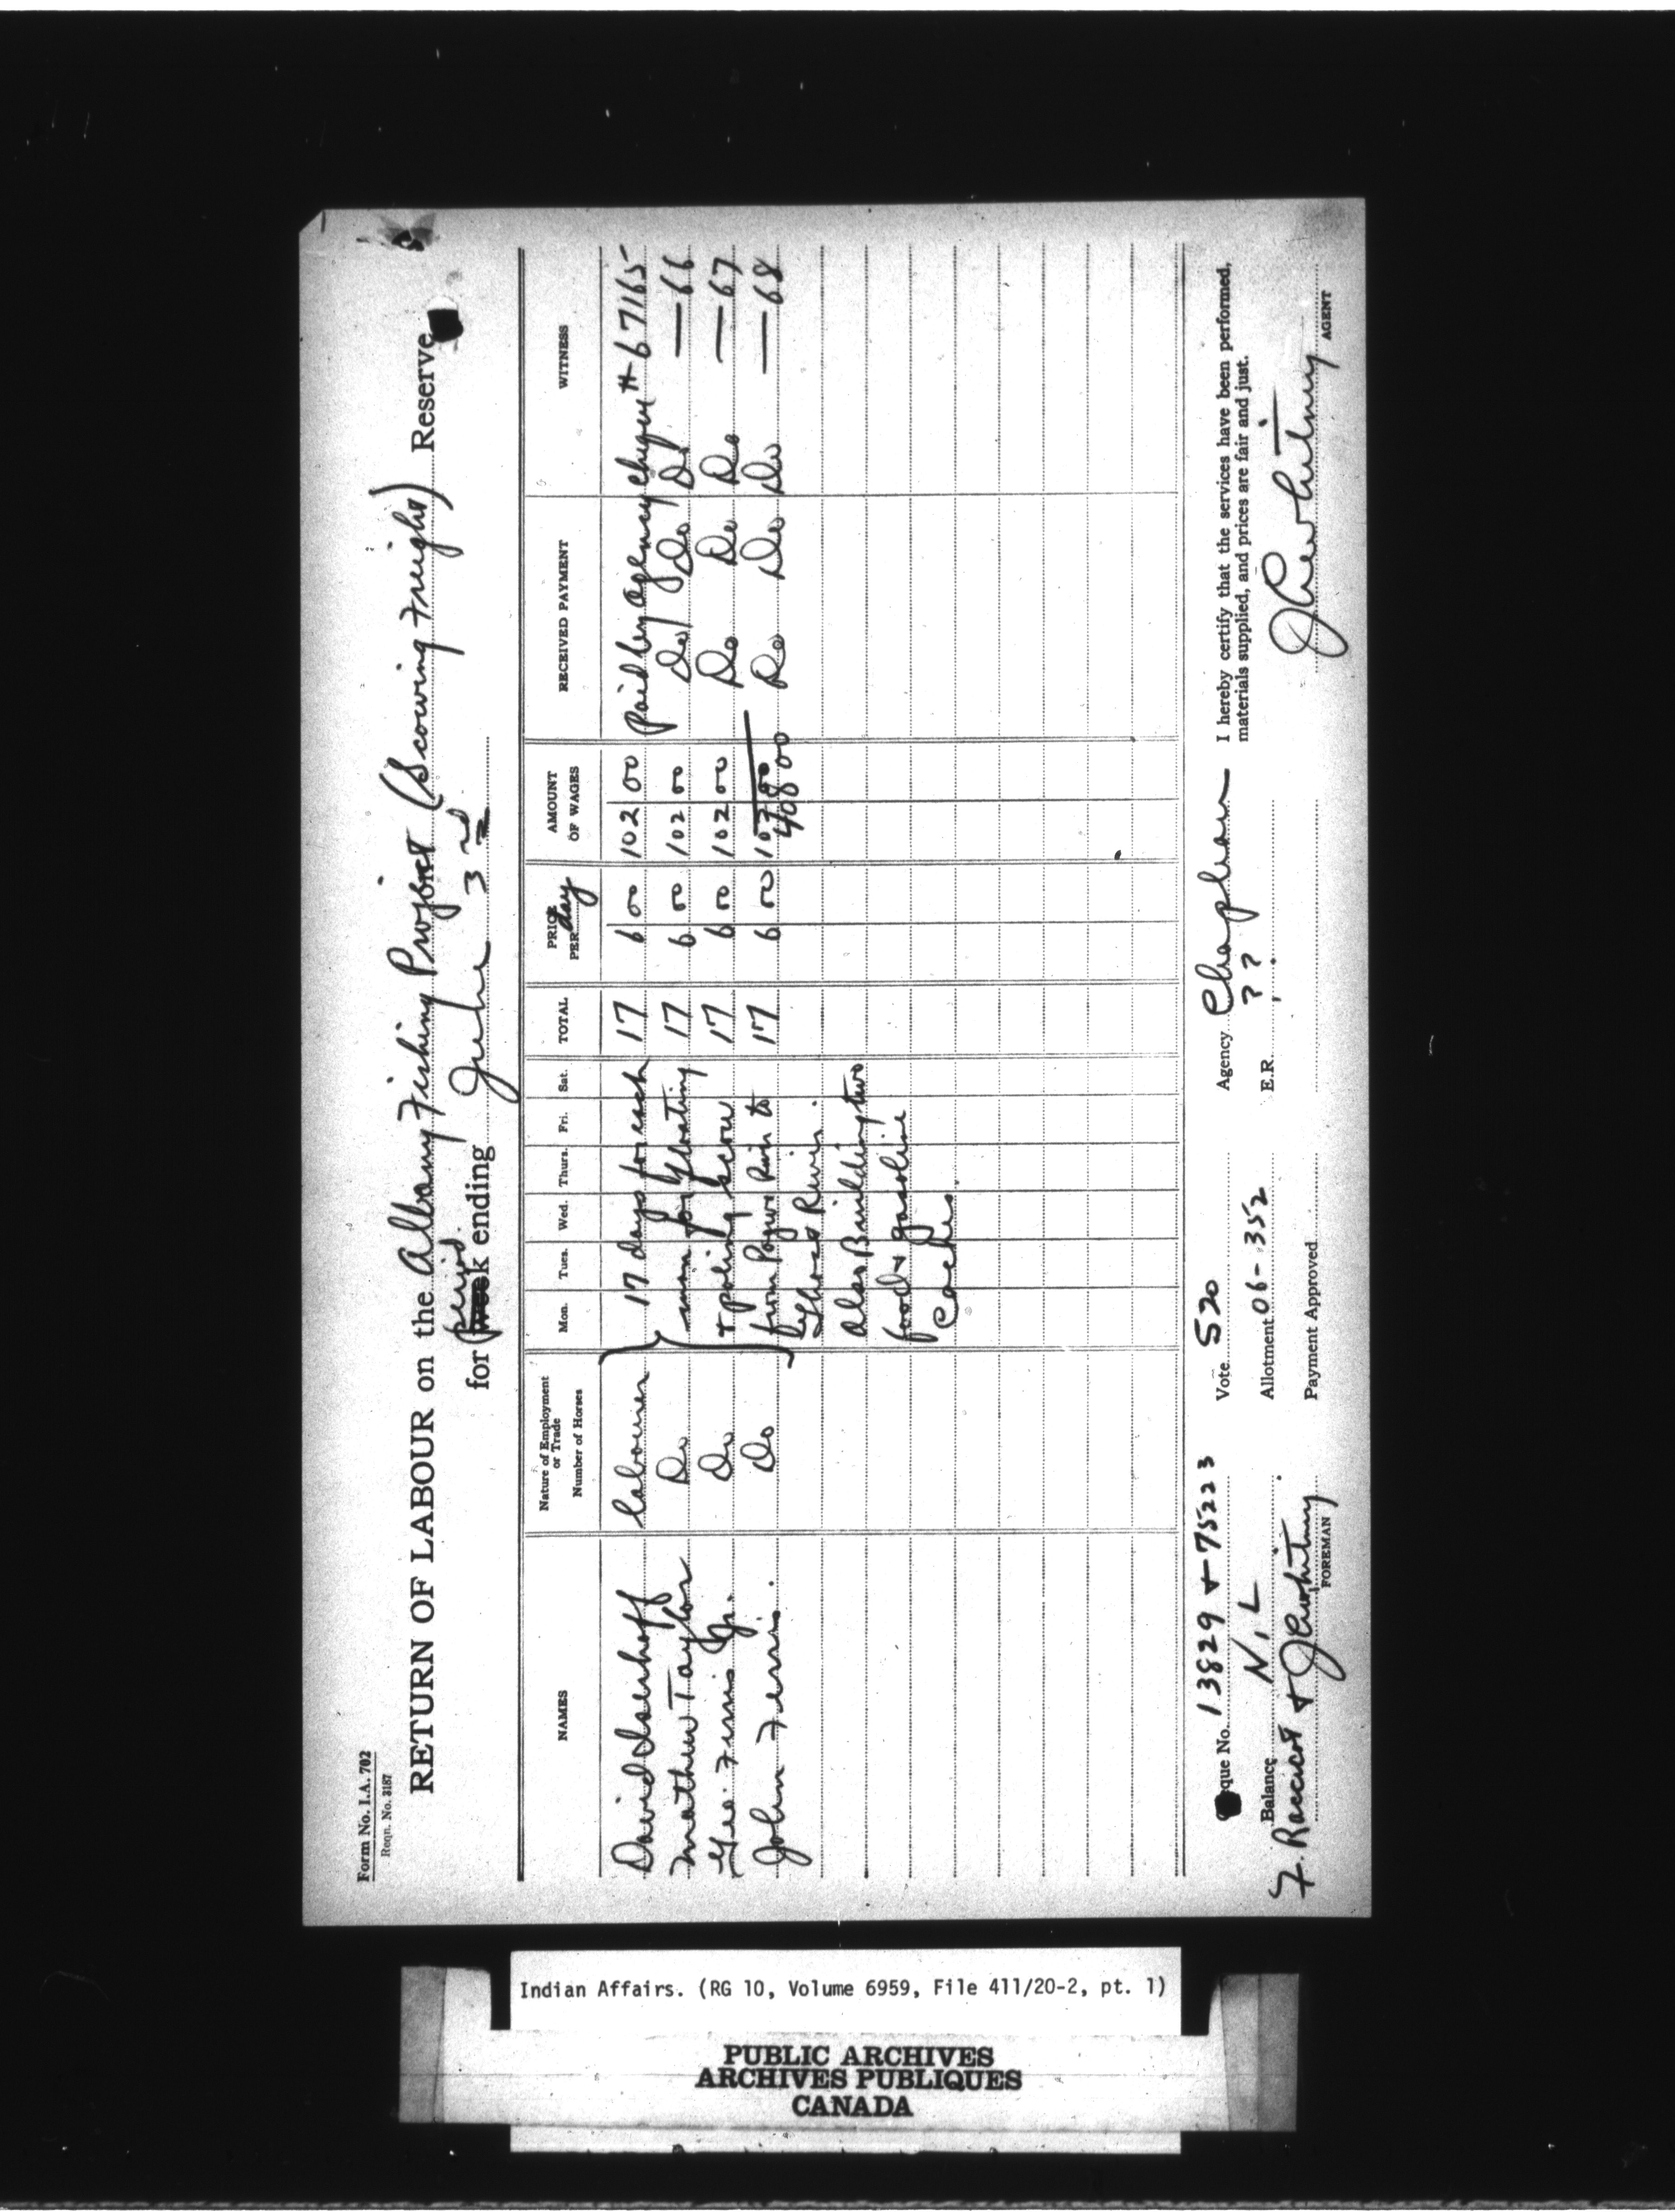 Form No. I.A. 702
Reqn. No. 3187
RETURN OF LABOUR on the Albany Fishing Project (Scowing Freight) Reserve
for period ending June 3rd
NAMES Nature of Employment or Trade Number of Horses Mon. Tues. Wed. Thurs. Fri. Sat. TOTAL PRICE PER day AMOUNT OF WAGES RECEIVED PAYMENT WITNESS
David labourer 17 days for each 17 6 00 102 00 Paid by Agency cheque # 67165
Mathew Taylor Do man for floating 17 6 00 102 00 Do Do Do — 66
Geo. Jr. Do + poling scow 17 6 00 102 00 Do Do Do — 67
John Do from River to 17 6 00 102 00 Do Do Do — 68
River. 408 00
also Building two
food & gasoline
Caches.
que No. 13829 + 75223 Vote 520 Agency Chapleau I hereby certify that the services have been performed,
materials supplied, and prices are fair and just.
Balance NIL Allotment 06-352 E.R. ? ?
F. Racicot + Payment Approved
FOREMAN AGENT
Indian Affairs. (RG 10, Volume 6959, File 411/20-2, pt. 1)
PUBLIC ARCHIVES
ARCHIVES PUBLIQUES
CANADA